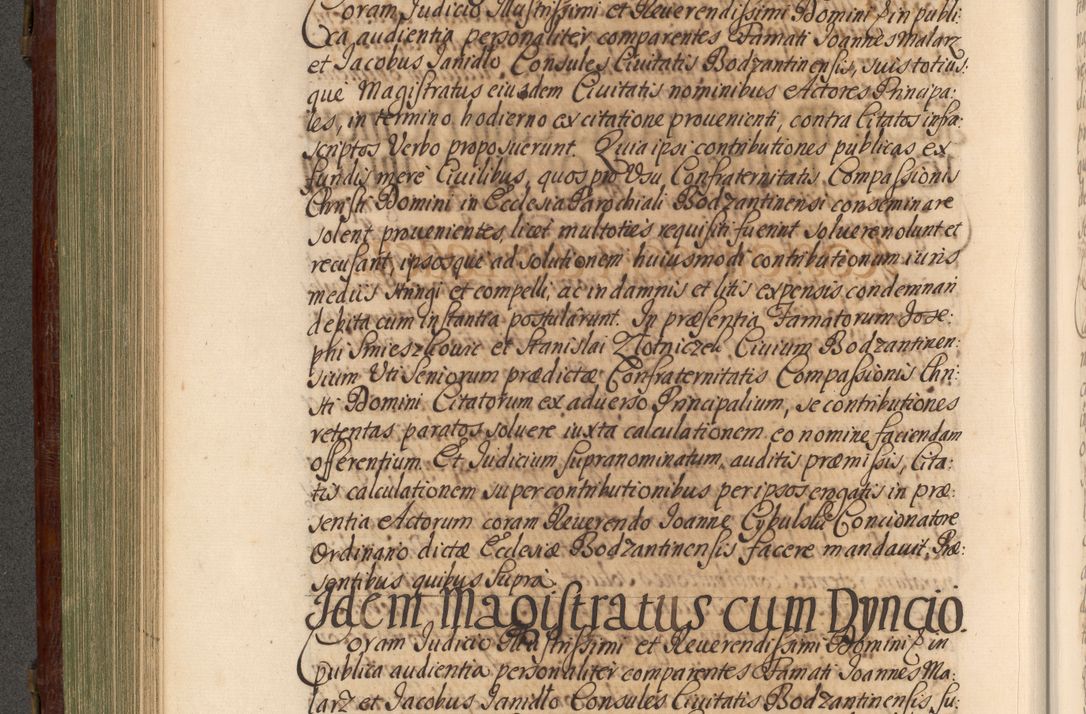 Coram Judicio Illustrissimi et Reuerendissimi Domini in publi:
ca audientia personaliter comparentes Famati Joannes Malarz
et Jacobus Janidło Consules Ciuitatis Bodzantinensis, suis totius:
que Magistratus eiusdem Ciuitatis nominibus Actores Principa:
les, in termino hodierno ex citatione prouenienti, contra Citatos infra:
scriptos Verbo proposuerunt. Quia ipsi contributiones publicas ex
fundis mere Ciuilibus, quos pro Usu Confraternitatis Compassionis
Christi Domini in Ecclesia Parochiali Bodzantinensi conseminare
solent prouenientes, licet multoties requisiti fuerint soluere nolunt et
recusant, ipsosque ad solutionem huiusmodi contributionum iuris
medijs stringi et compelli, ac in damnis et litis expensis condemnari
debita cum instantia postularunt. In præsentia Famatorum Jose:
phi Smieszkowic et Stanislai Złotniczek Ciuium Bodzantinen:
sium Uti Seniorum prædictæ Confraternitatis Compassionis Chri:
sti Domini Citatorum ex aduerso Principalium, se contributiones
retentas paratos soluere iuxta calculationem eo nomine faciendam
offerentium. Et Judicium supranominatum, auditis præmissis, Cita:
tis calculationem super contributionibus per ipsos erogatis in præ:
sentia Actorum coram Reuerendo Joanne Cybulski Concionatore
Ordinario dictæ Ecclesiæ Bodzantinensis facere mandauit. Præ:
sentibus quibus supra.
Idem Magistratus cum Dyncio.
Coram Judicio Illustrissimi et Reuerendissimi Domini in
publica audientia personaliter comparentes Famati Joannes Ma:
larz et Jacobus Janidło Consules Ciuitatis Bodzantinensis su: